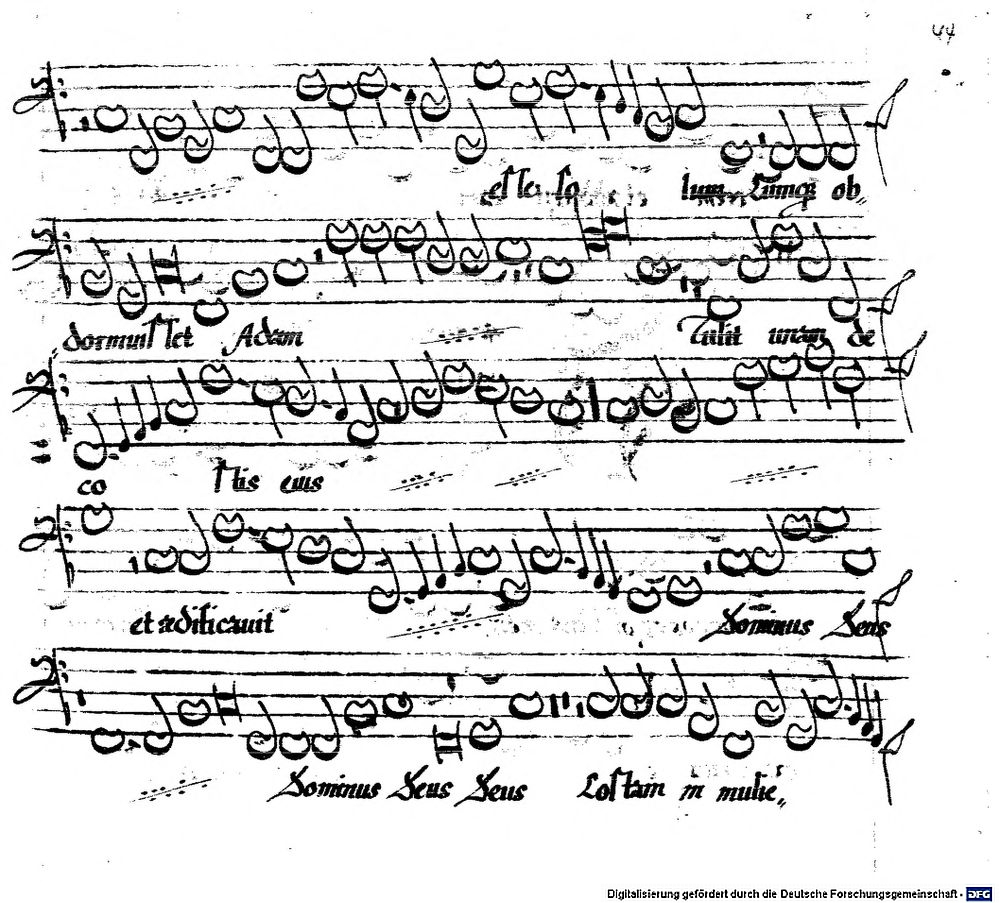 44
esse so lum Cumq ob,,
dormuisset Adam Tulit unam de
co stis eius
et ædificauit Dominus Deus
Dominus Deus Deus Costam in mulie,,
Digitalisierung gefördert durch die Deutsche Forschungsgemeinschaft - DFG